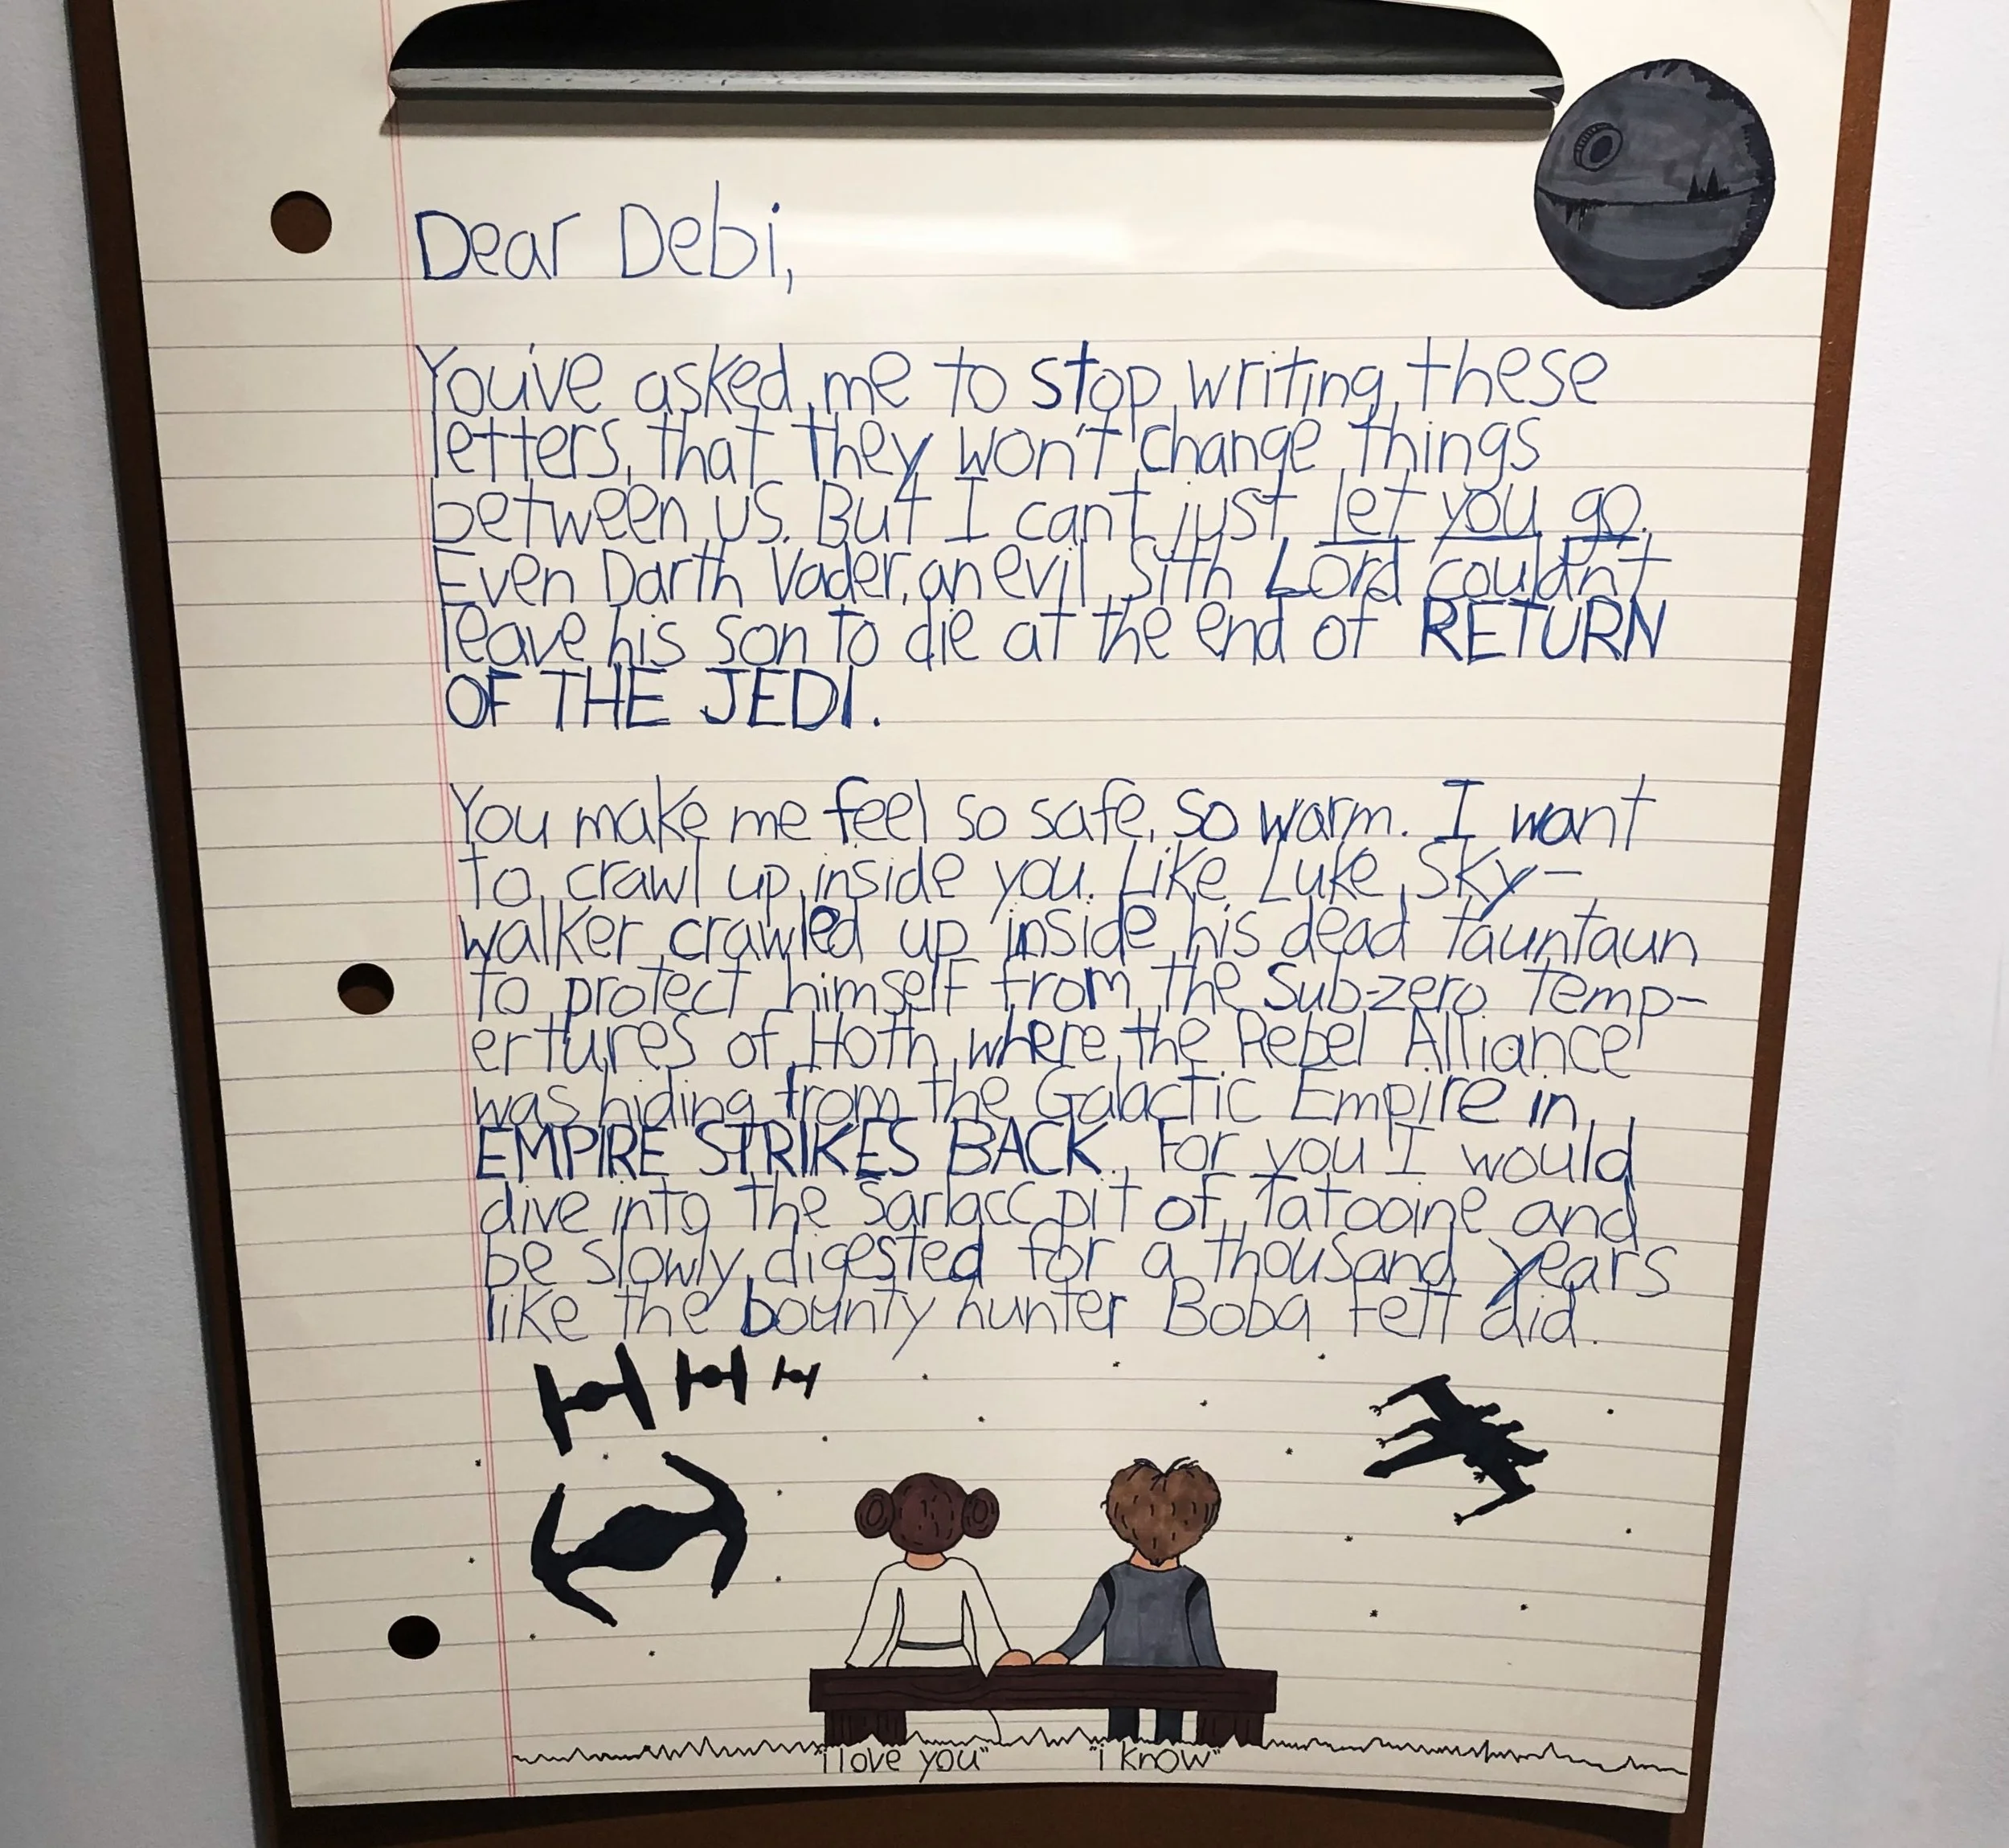 Dear Debi,
You've asked me to stop writing these
letters, that they won't change things
between us. But I can't just let you go.
Even Darth Vader, an evil Sith Lord couldn't
leave his son to die at the end of RETURN
OF THE JEDI.
You make me feel so safe, so warm. I want
to crawl up inside you. Like Luke Sky-
walker crawled up inside his dead tauntaun
to protect himself from the Sub-zero temp-
ertures of Hoth where the Rebel Alliance
was hiding from the Galactic Empire in
EMPIRE STRIKES BACK. For you I would
dive into the Sarlacc pit of Tatooine and
be slowly digested for a thousand years
like the bounty hunter Boba Fett did.
"i love you" "i know"